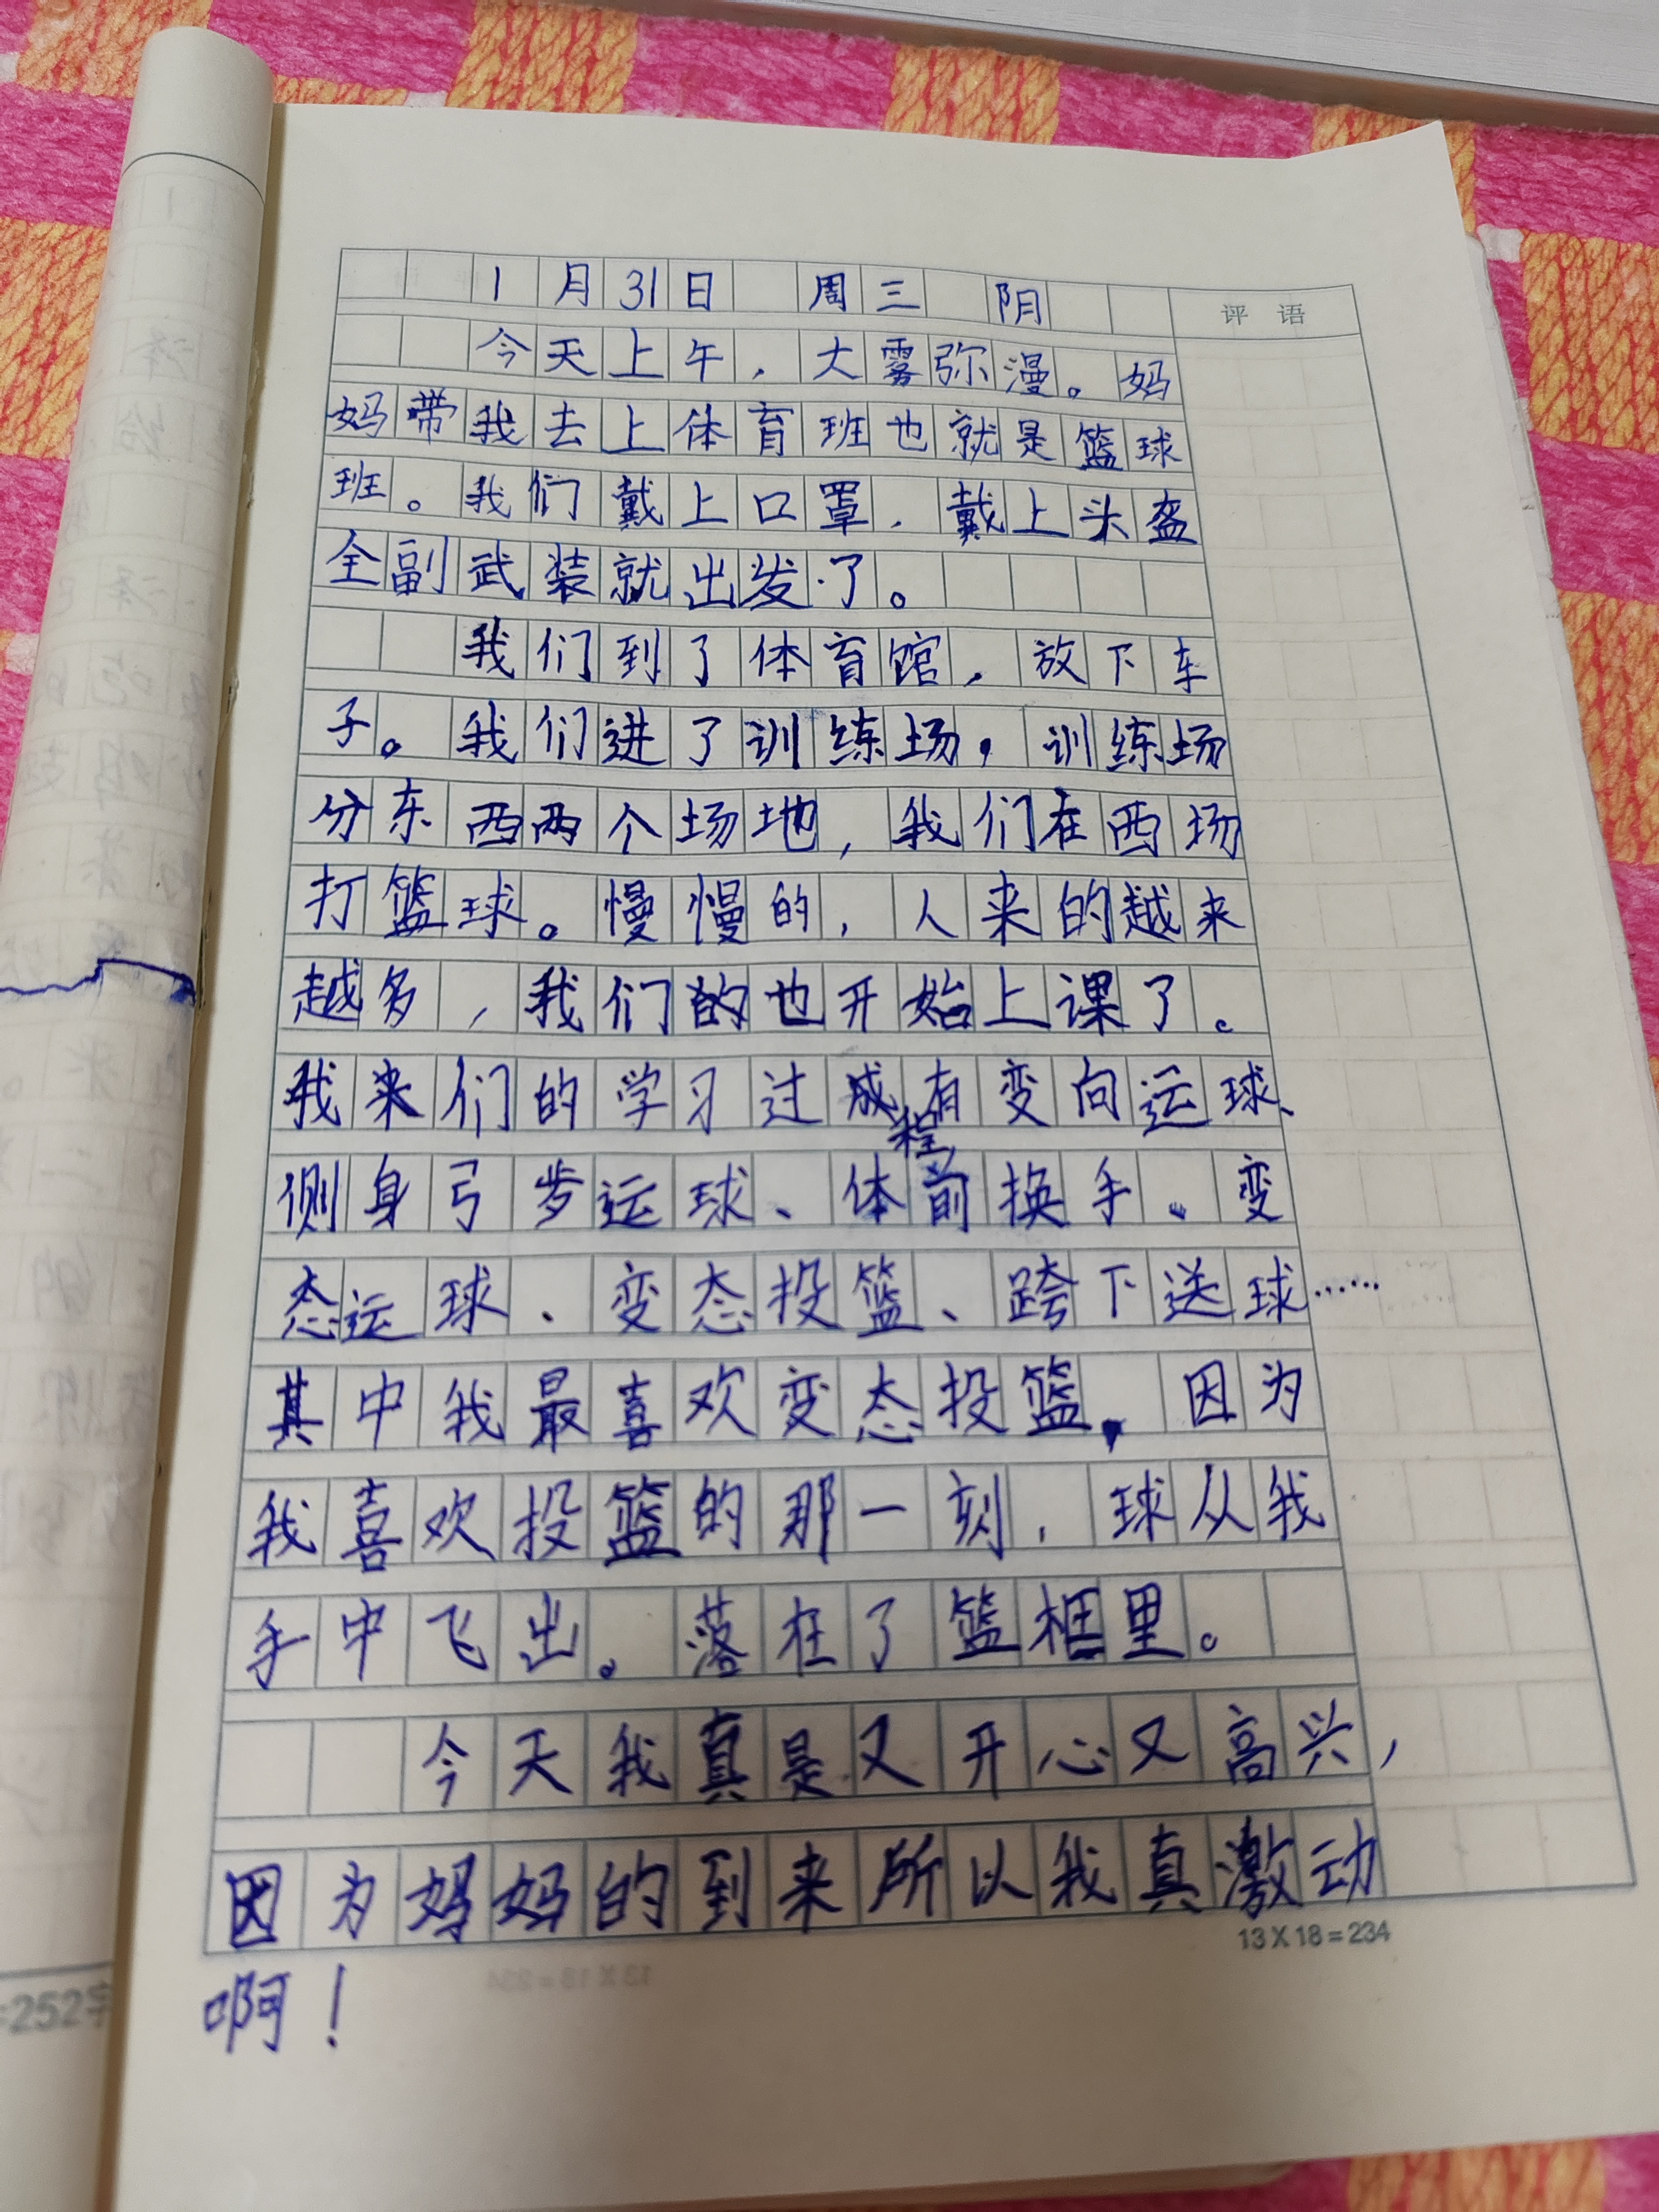 1月31日 周三 阴
评语
今天上午，大雾弥漫。妈
妈带我去上体育班也就是篮球
班。我们戴上口罩，戴上头盔
全副武装就出发了。
我们到了体育馆，放下车
子。我们进了训练场，训练场
分东西两个场地，我们在西场
打篮球。慢慢的，人来的越来
越多，我们的也开始上课了。
我来们的学习过成有变向运球、
程
侧身弓步运球、体前换手、变
态运球、变态投篮、跨下送球……
其中我最喜欢变态投篮，因为
我喜欢投篮的那一刻，球从我
手中飞出。落在了篮框里。
今天我真是又开心又高兴，
因为妈妈的到来所以我真激动
13×18=234
啊！
=252字